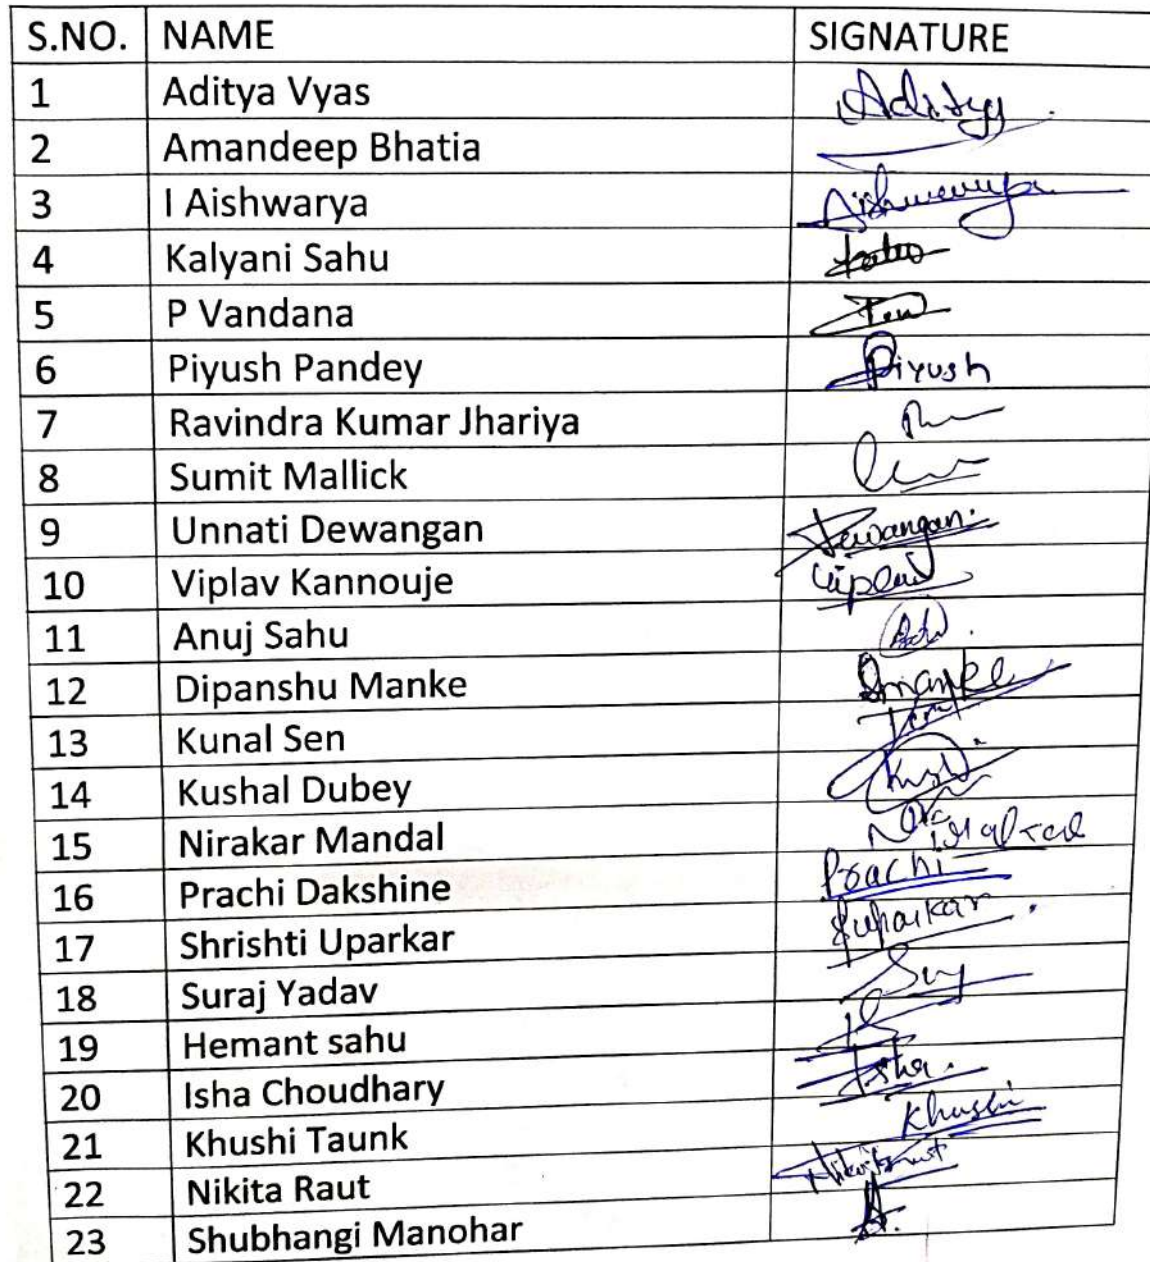 S.NO. NAME SIGNATURE
1 Aditya Vyas Aditya
2 Amandeep Bhatia
3 I Aishwarya Aishwarya
4 Kalyani Sahu
5 P Vandana
6 Piyush Pandey Piyush
7 Ravindra Kumar Jhariya
8 Sumit Mallick
9 Unnati Dewangan Dewangan
10 Viplav Kannouje Viplav
11 Anuj Sahu
12 Dipanshu Manke Dmanke
13 Kunal Sen
14 Kushal Dubey
15 Nirakar Mandal
16 Prachi Dakshine Prachi
17 Shrishti Uparkar Suparkar
18 Suraj Yadav
19 Hemant sahu
20 Isha Choudhary Isha.
21 Khushi Taunk Khushi
22 Nikita Raut
23 Shubhangi Manohar